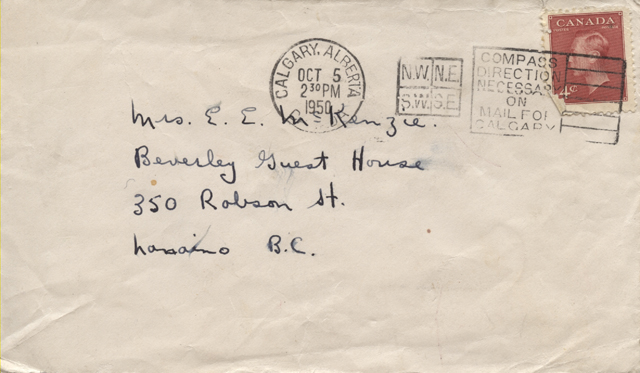 CALGARY, ALBERTA
OCT 5
2 30 PM
1950
N.W. N.E.
S.W. S.E.
COMPASS
DIRECTION
NECESSARY
ON
MAIL FOR
CALGARY
CANADA
4¢
Mrs. E. E. McKenzie.
Beverley Guest House
350 Robson St.
Nanaimo B.C.